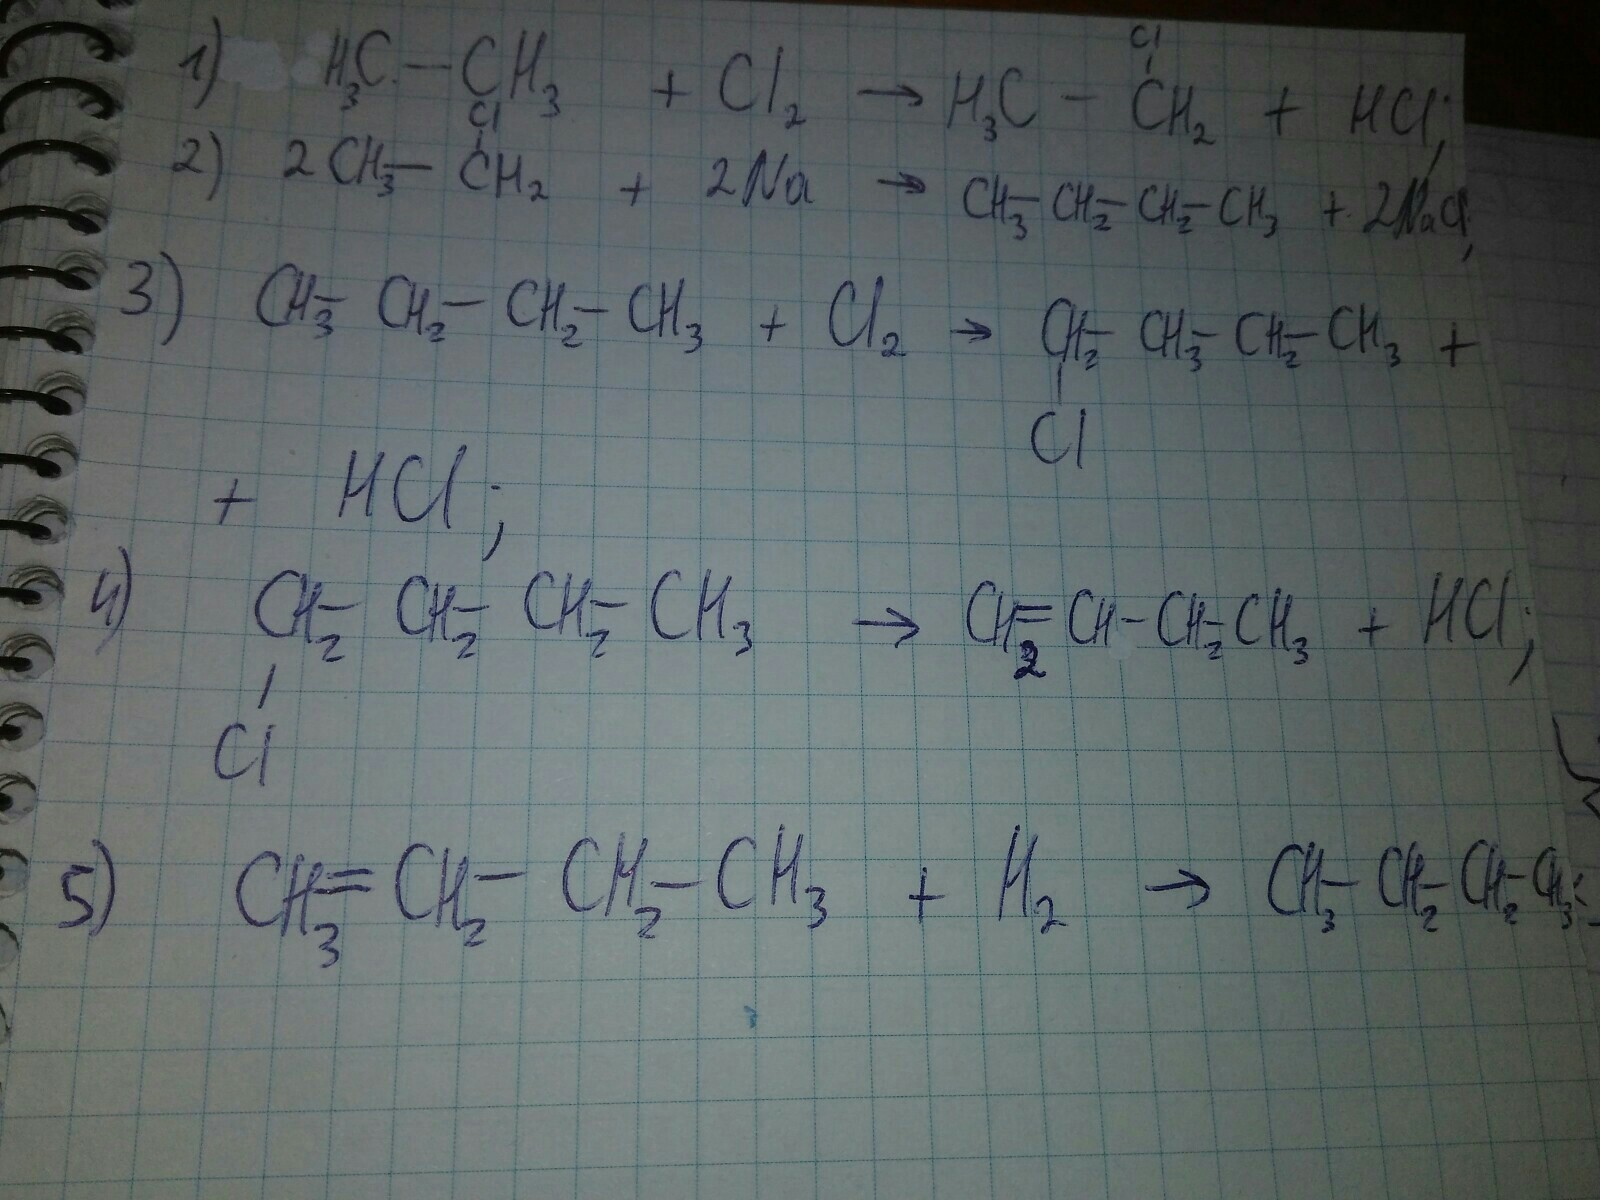 1) H₃C—CH₃ + Cl₂ → H₃C — CH₂ + HCl;
Cl
Cl
2) 2CH₃— CH₂ + 2Na → CH₃—CH₂—CH₂—CH₃ + 2NaCl;
3) CH₃— CH₂— CH₂—CH₃ + Cl₂ → CH₂—CH₃—CH₂—CH₃ +
Cl
+ HCl;
4) CH₂—CH₂—CH₂—CH₃ → CH₂=CH—CH₂—CH₃ + HCl;
Cl
5) CH₃=CH₂—CH₂—CH₃ + H₂ → CH₃—CH₂—CH₂—CH₃;